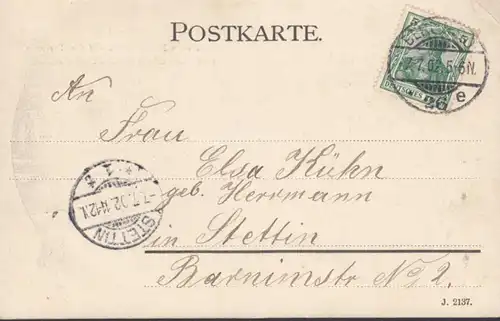 POSTKARTE.
7.7.02.5-6N.
26 e
An
Frau
Elsa Kühn
geb. Herrmann
in Stettin
Barnimstr No 2.
* 1 *
7.7.02. 11-12.N.
STETTIN
J. 2137.